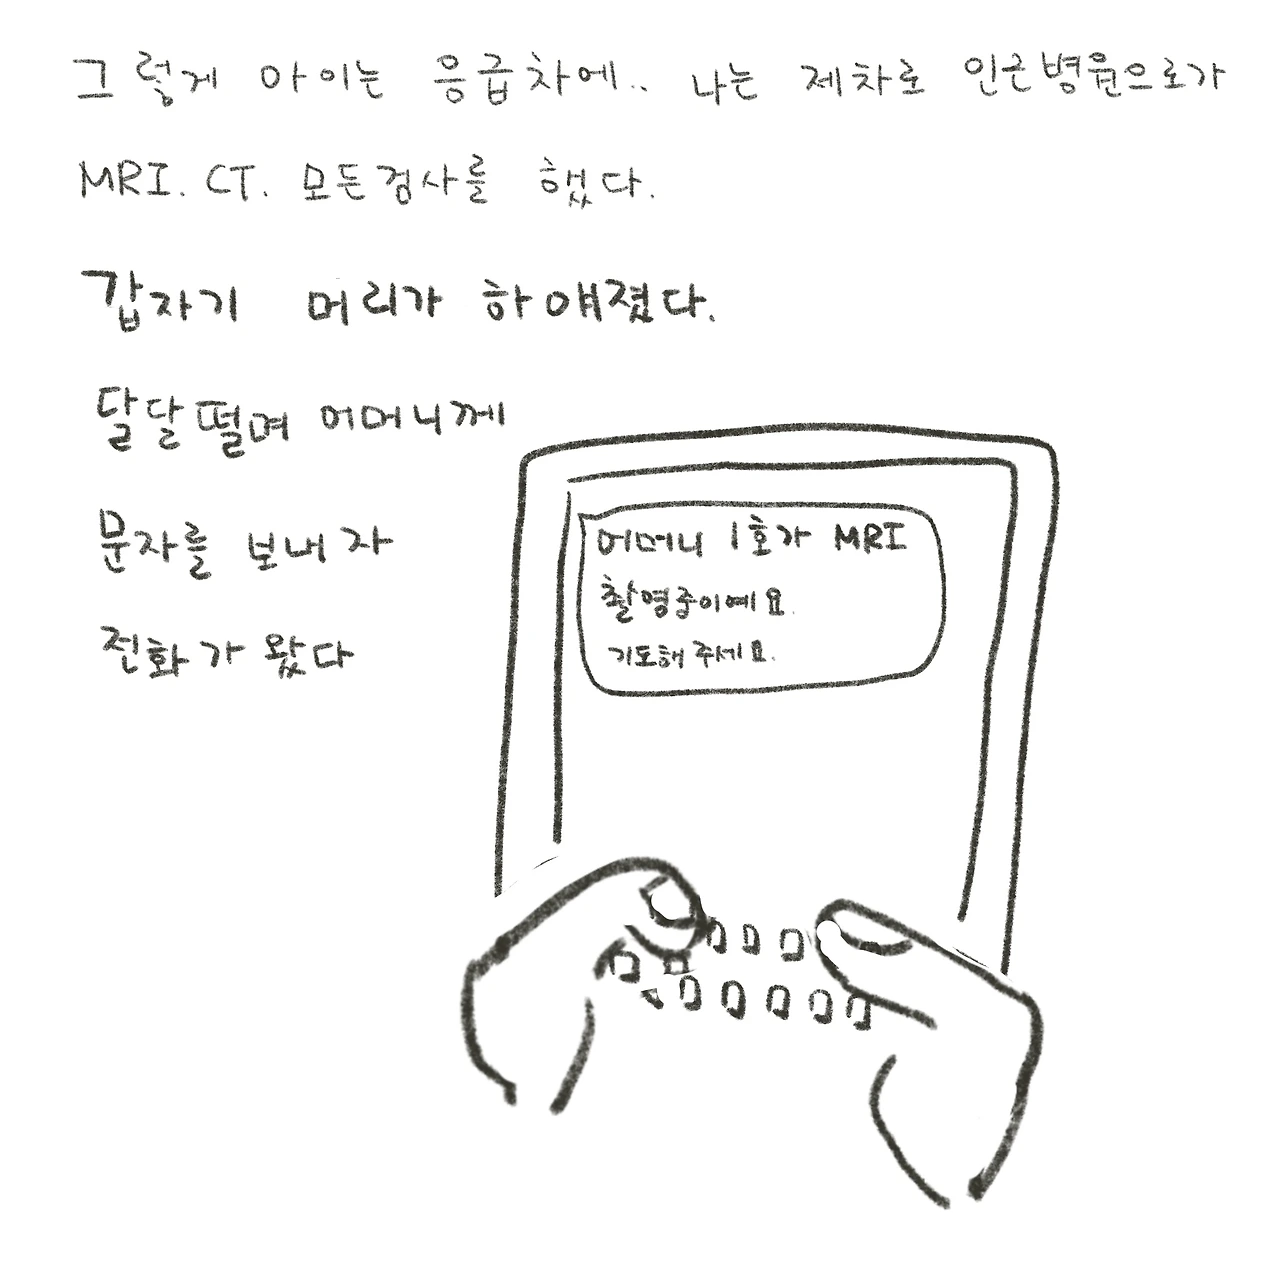 그렇게 아이는 응급차에.. 나는 제차로 인근병원으로가
MRI. CT. 모든검사를 했다.
갑자기 머리가 하얘졌다.
달달떨며 어머니께
문자를 보내자
전화가 왔다
어머니 1호가 MRI
촬영중이예요.
기도해주세요.